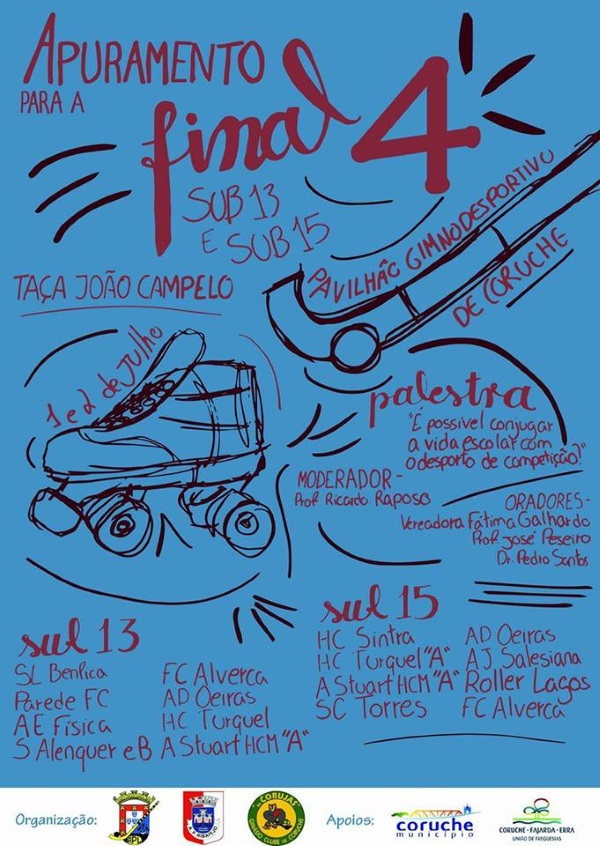 APURAMENTO
PARA A
final 4
SUB 13
E SUB 15
TAÇA JOÃO CAMPELO
PAVILHÃO GIMNODESPORTIVO
DE CORUCHE
1 e 2 de Julho
palestra
"É possivel conjugar
a vida escolar com
o desporto de competição!"
MODERADOR-
Prof. Ricardo Raposo
ORADORES-
Vereadora Fátima Galhardo
Prof. José Peseiro
Dr. Pedro Santos
sul 13
SL Benfica
Parede FC
AE Física
S Alenquer e B
FC Alverca
AD Oeiras
HC Turquel
A Stuart HCM "A"
sul 15
HC Sintra
HC Turquel "A"
A Stuart HCM "A"
SC Torres
AD Oeiras
AJ Salesiana
Roller Lagos
FC Alverca
Organização:
CORUJAS
Apoios:
coruche
município
CORUCHE · FAJARDA · ERRA
UNIÃO DE FREGUESIAS